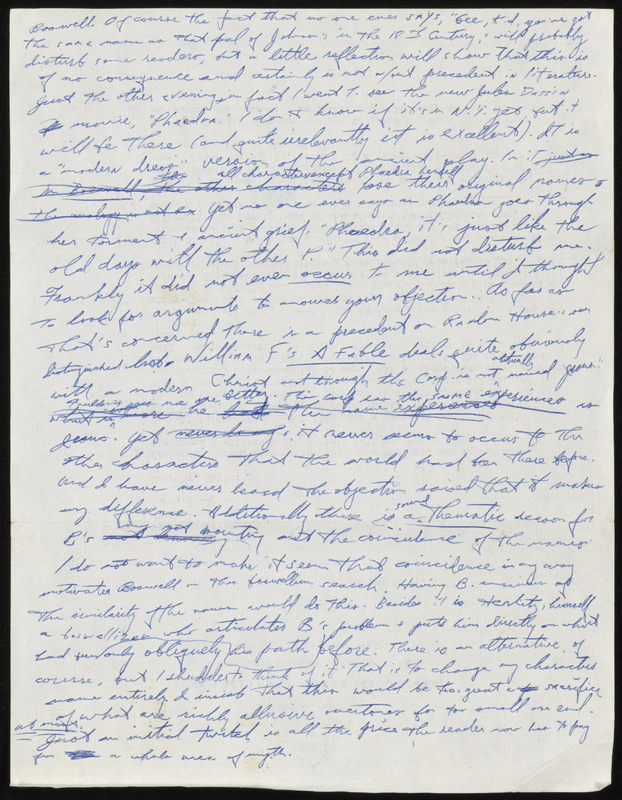 Boswell. Of course the fact that no one ever says, "Gee, kid, you've got
the same name as that pal of Johnson's in the 18th Century," will probably
disturb some readers, but a little reflection will show that this is
of no consequence and certainly is not without precedent in literature.
Just the other evening in fact I went to see the new Jules Dassin
movie, "Phaedra." I don't know if it's in N.Y. yet but it
will be there (and quite irrelevantly it is excellent). It is
a "modern dress" version of the ancient play. In it
all characters except Phaedra herself
in Boswell, the other characters lose their original names &
the analogy Yet no one ever says as Phaedra goes through
her torment & ancient grief, "Phaedra, it's just like the
old days with the other P." This did not disturb me.
Frankly it did not even occur to me until I thought
to look for arguments to answer your objection. As far as
that's concerned there is a precedent on Random House's own
distinguished list. William F's A Fable deals quite obviously
with a modern Christ and though the Corp. is not actually named Jesus
he the same experiences as
Jesus. Yet it never seems to occur to the
other characters that the world had been there before.
And I have never heard the objection raised that it makes
any difference. Additionally there is a sound thematic reason for
B's not the coincidence of the names
I do not want to make it seem that coincidence in any way
motivates Boswell or this boswellian search. Having B. conscious of
the similarity of the names would do this. Besides it is Herlitz, himself
a boswellian who articulates B's problem & puts him directly on what
had previously obliquely his path before. There is an alternative, of
course, but I shudder to think of it. That is to change my character's
name entirely. I insist that this would be too great a sacrifice
of what are richly allusive overtones for too small an end.
at most,
Just an initial twist is all the price the reader now has to pay
for a whole area of myth.